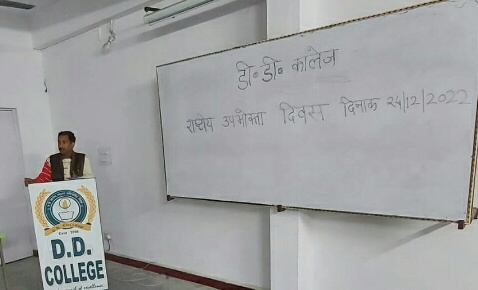 डी॰ डी॰ कालेज
राष्ट्रीय उपभोक्ता दिवस दिनांक 24/12/2022
D.D.
COLLEGE